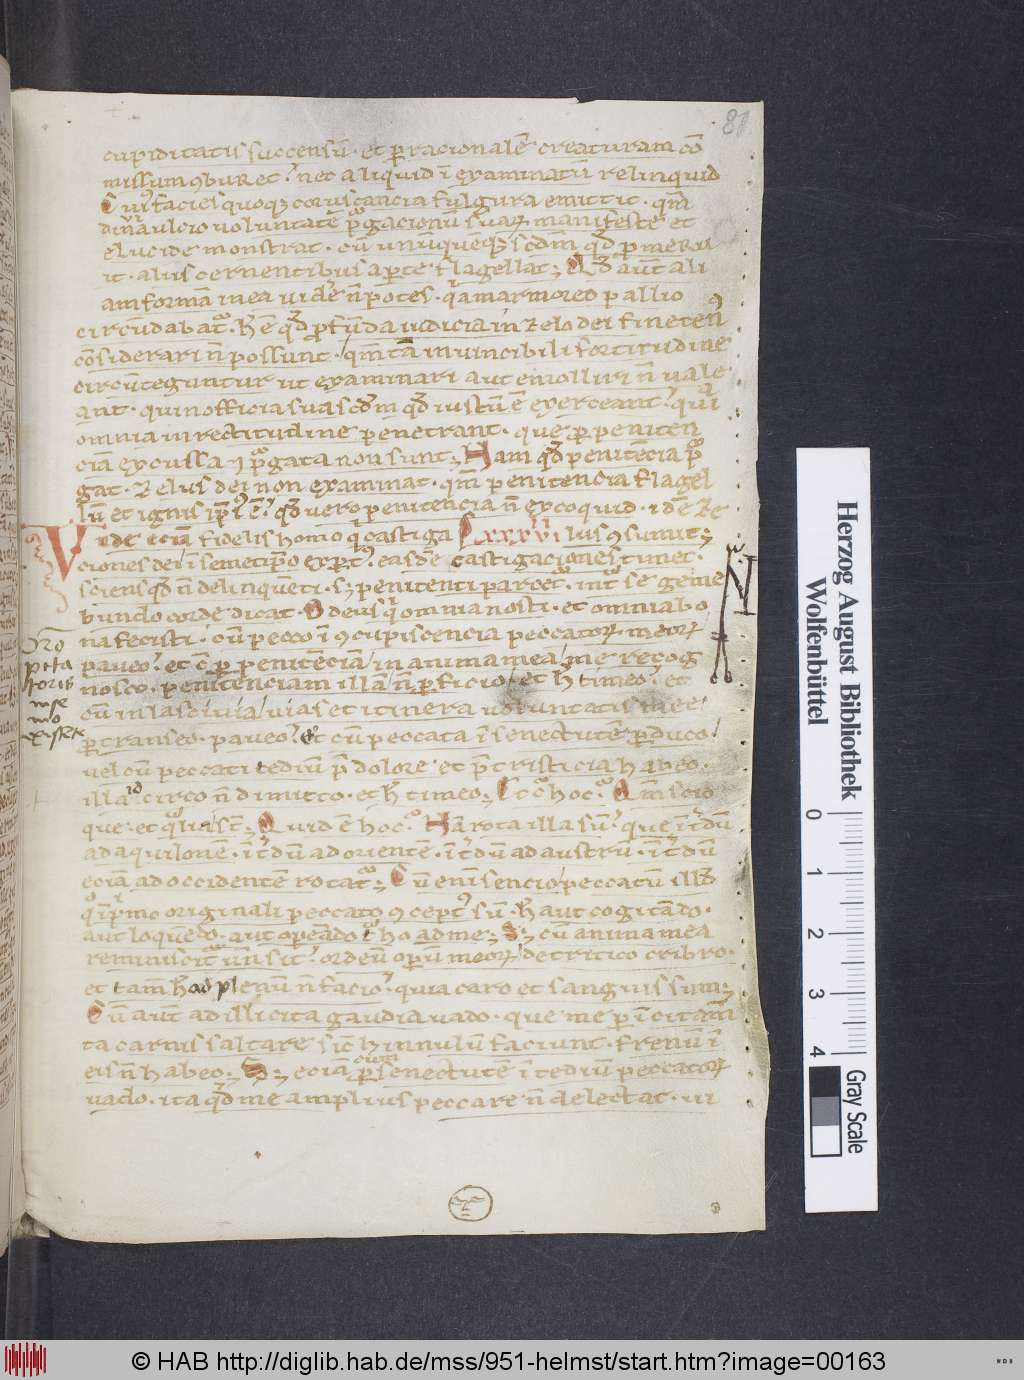 81
cupiditatis succensū · et ꝑ racionalē creaturam cō
missum ꝯburet · nec aliquid ī examinatū relinquid
Cui᷒ facies quoqꝫ coruscancia fulgura emittit · qm̄
diuīa ulcio uoluntatē pᷓgacionū suaꝝ manifeste et
elucide monstrat · cū unūquemqꝫ scdm̄ qd̄ ꝓmeru
it · aliis cernentibus aꝑte flagellat ; Qd̄ aut̄ ali
am formā in ea uidē n̄ potes · q̄ā marmoreo pallio
circūdabat᷑ · h̄ ē qd̄ ꝓfūda iudicia in zelo dei finetenꝰ
cōsiderari n̄ possunt · qm̄ tā inuincibili fortitudine
circūteguntur ut examinari aut emolliri n̄ uale
ant · quin officia sua scdm̄ qd̄ iustū ē exerceant · quīa
omnia in rectitudine penetrant · que ꝑ peniten
ciā excussa ⁊ pᷓgata non sunt ; Nam qd̄ penitēcia pᷓ
gat · zelus dei non examinat · qm̄ penitencia flagel
lū et ignis ip̄i᷒ ē · qd̄ uero penitencia n̄ excoquid · idē ze
Vide eciā fidelis homo q̄ castiga Cxxxvi lus ꝯsumit ;
ciones dei ī semetip̄o exꝑt᷒ · easdē castigaciones timet ·
sciens qd̄ n̄ delinquēti · sꝫ penitenti parcet᷑ · int̄ se geme
bundo corde dicat · O deus q̄ omnia nosti · et omnia bo
na fecisti · cū pecco ī ꝯcupiscencia peccatoꝝ meoꝝ
paueo · et c̄ ꝑ penitēciā in anima mea me recog
nosco · penitenciam illā n̄ ꝑficio · et h̄ timeo · et
cū in lasciuia uias et itinera uoluntatis mee
ꝑtranseo · paueo · et cū peccata ī senectutē ꝑduco
uel cū peccati tediū p̄ dolore et p̄ tristicia habeo ·
illa id circo n̄ dimitto · et h̄ timeo ;
que ·
Quid ē hoc · Nā rota illa sū · que īt̄dū
ad aquilonē · īt̄dū ad orientē · īt̄dū ad austrū · īt̄dū
eciā ad occidentē rotat᷑ ; Cū enī sencio peccatū illd̄
q° ī pͥmo originali peccato ꝯcept᷒ sū · h̄ aut cogitādo ·
aut loquēdo · aut oꝑādo t̄ho ad me ; Sꝫ cū anima mea
reminiscit᷑ un̄ sit · ordeū oꝑum meoꝝ de tritico cribro ·
et tam̄ h̄ ad plenū n̄ facio · quia caro et sanguis sum ;
Cū aut̄ ad illicita gaudia uado · que me ꝑ īcitam̄
ta carnis saltare sic hinnulū faciunt · frenū ī
eis n̄ habeo ; Sꝫ eciā cum ꝑ senectutē ī tediū peccatoꝝ
uado · ita qd̄ me amplius peccare n̄ delectat · in
Or̄o
petca
toris
in se
mo
Herzog August Bibliothek
Wolfenbüttel
0 1 2 3 4
Gray Scale
© HAB http://diglib.hab.de/mss/951-helmst/start.htm?image=00163